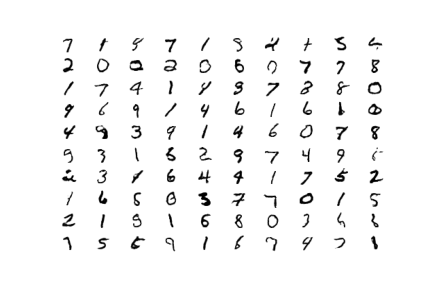 7 9 7 1 9 5
2 0 2 2 0 6 0 7 7 8
1 7 4 1 8 9 7 3 8 0
9 6 9 1 4 6 1 6 1 0
4 9 3 9 1 4 6 0 7 8
9 3 1 6 2 9 7 4 9
3 6 4 4 1 7 5 2
1 6 6 0 3 7 7 0 1 5
2 1 9 1 6 8 0 3
1 5 5 9 1 6 7 4 1